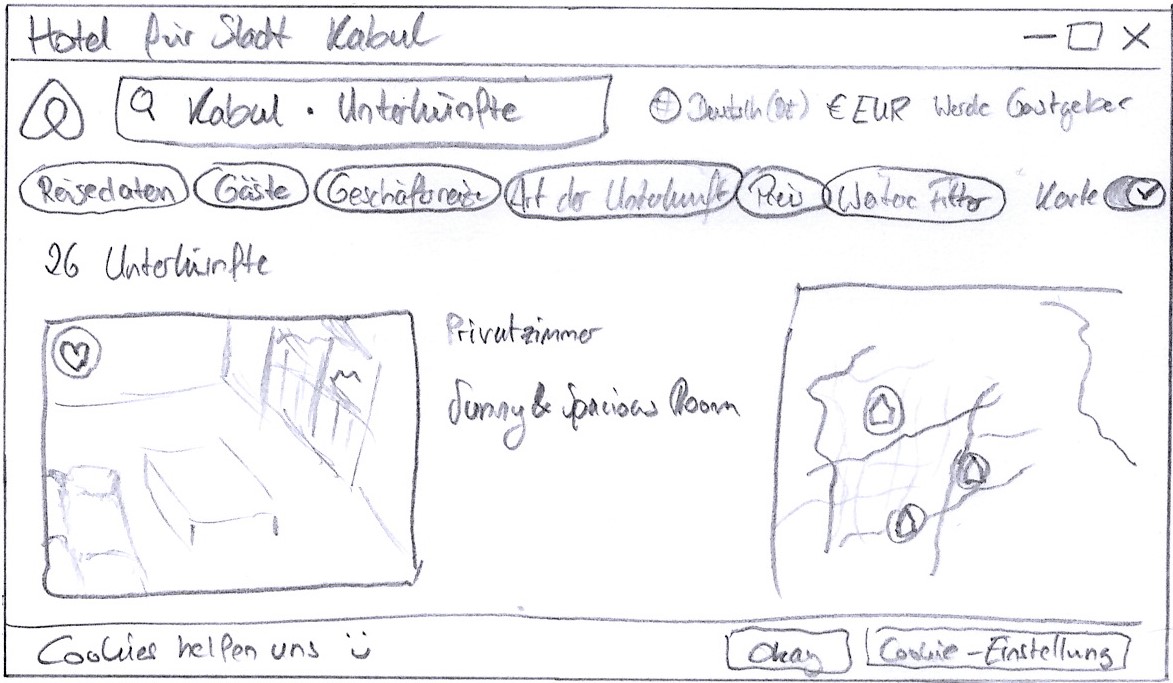 Hotel für Stadt Kabul
Kabul · Unterkünfte
Deutsch (DE) € EUR Werde Gastgeber
Reisedaten Gäste Geschäftsreise Art der Unterkunft Preis Weitere Filter Karte
26 Unterkünfte
Privatzimmer
Sunny & Spacious Room
Cookies helfen uns :)
Okay Cookie-Einstellung